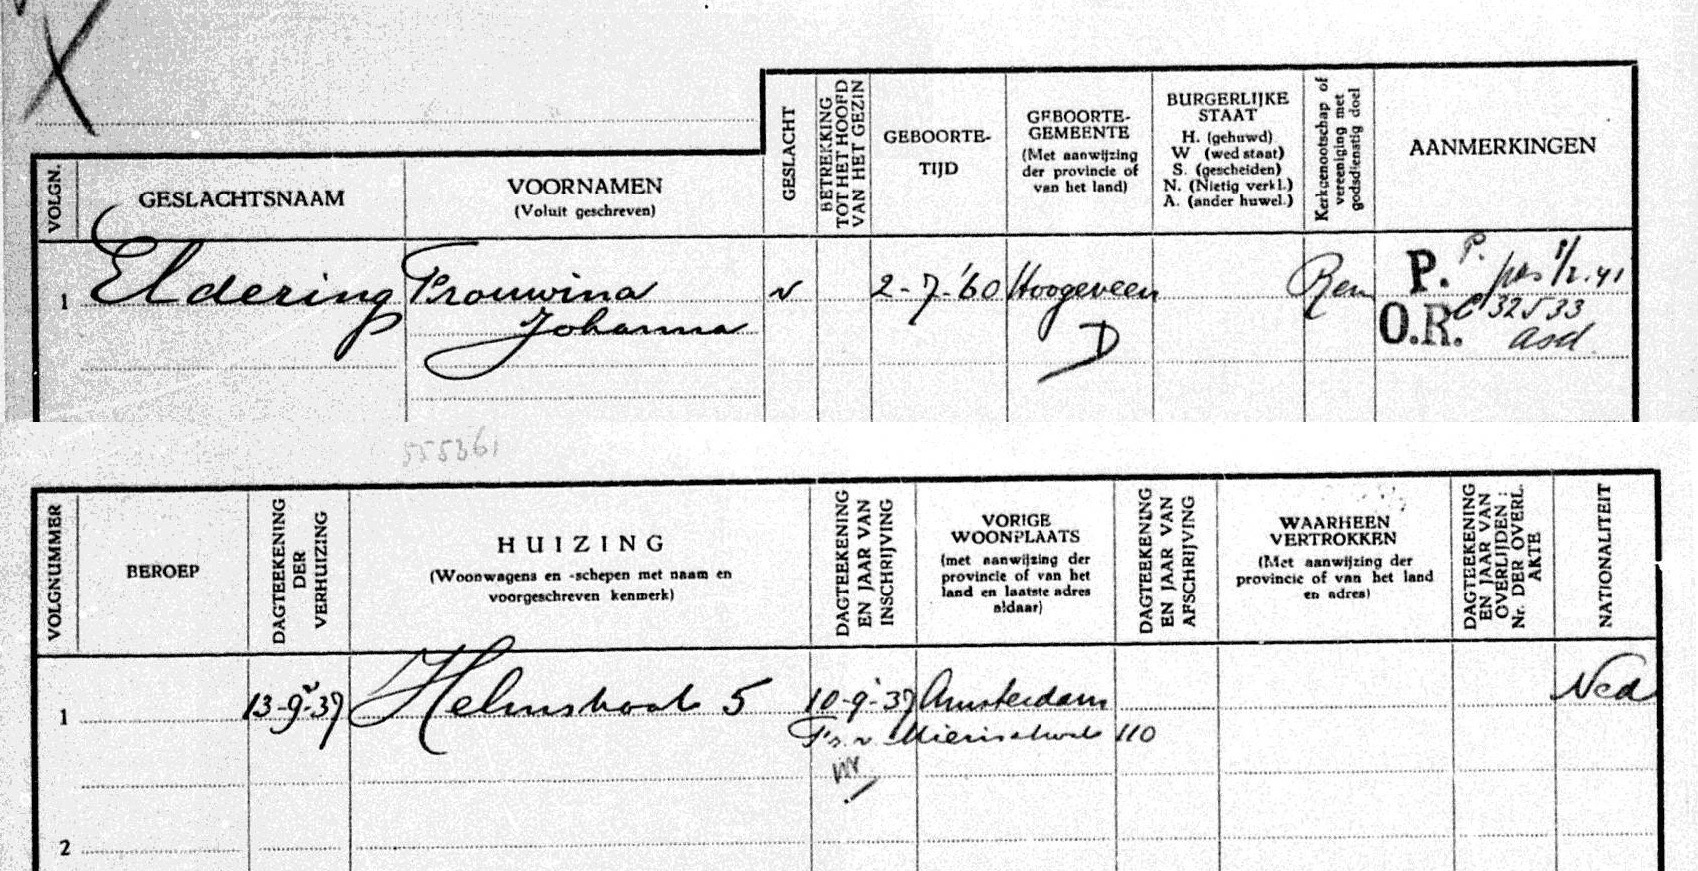 VOLGN.
GESLACHTSNAAM
VOORNAMEN
(Voluit geschreven)
GESLACHT
BETREKKING
TOT HET HOOFD
VAN HET GEZIN
GEBOORTE-
TIJD
GEBOORTE-
GEMEENTE
(Met aanwijzing
der provincie of
van het land)
BURGERLIJKE
STAAT
H. (gehuwd)
W (wed staat)
S. (gescheiden)
N. (Nietig verkl.)
A. (ander huwel.)
Kerkgenootschap of
vereeniging met
godsdienstig doel
AANMERKINGEN
1 Eldering Frouwina v 2-7-'60 Hoogeveen Rem P. P.
Johanna D O.R. C 32533
asd.
555361
VOLGNUMMER
BEROEP
DAGTEEKENING
DER
VERHUIZING
HUIZING
(Woonwagens en -schepen met naam en
voorgeschreven kenmerk)
DAGTEEKENING
EN JAAR VAN
INSCHRIJVING
VORIGE
WOONPLAATS
(met aanwijzing der
provincie of van het
land en laatste adres
aldaar)
DAGTEEKENING
EN JAAR VAN
AFSCHRIJVING
WAARHEEN
VERTROKKEN
(Met aanwijzing der
provincie of van het land
en adres)
DAGTEEKENING
EN JAAR VAN
OVERLIJDEN;
Nr. DER OVERL.
AKTE
NATIONALITEIT
1 13-9-37 5 10-9-37 Amsterdam Ned
Fr. v. 110
2